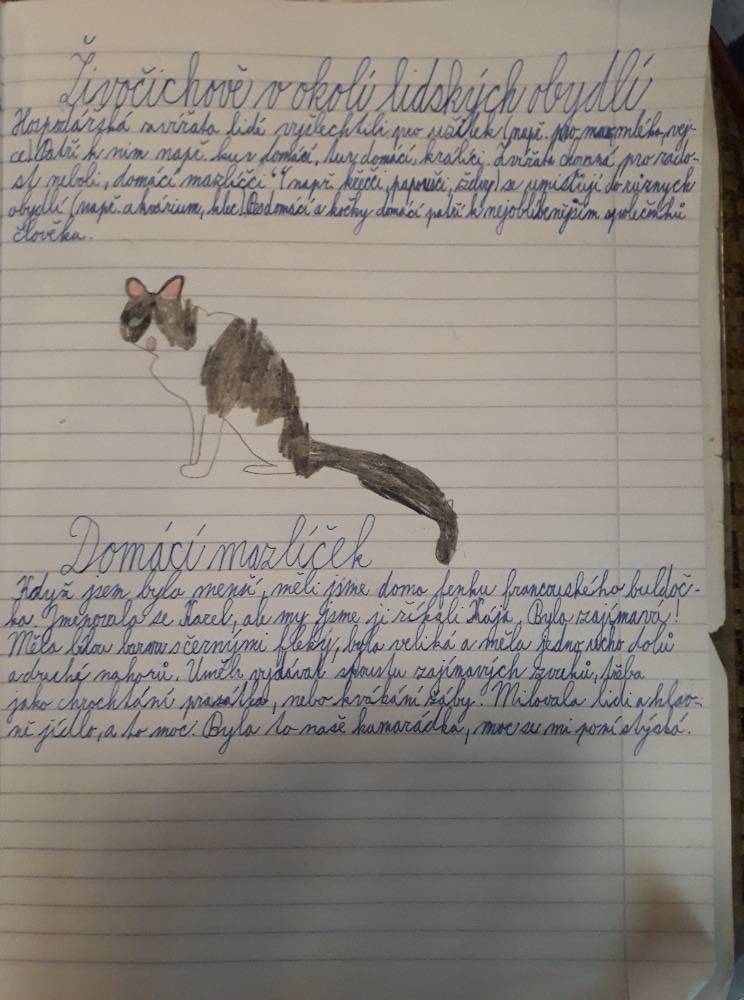 Živočichově v okolí lidských obydlí
Hospodářská zvířata lidé vyšlechtili pro užitek (např. pro maso, mléko, vej-
ce). Patří k nim např. kur domácí, tur domácí, králíci. Zvířata chovná pro rado-
st neboli „domácí mazlíčci“ (např. křečci, papoušci, želvy) se umisťují do různych
obydlí (např. akvárium, klec). Psi domácí a kočky domácí patří k nejoblíbenějším společníků
člověka.
Domácí mazlíček
Když jsem byla menší, měli jsme doma fenku francouského buldoč-
ka. Jmenovala se Karel, ale my jsme ji říkali Kája. Byla zajímavá!
Měla bílou barvu s černými fleky, byla veliká a měla jedno ucho dolů
a druhé nahorů. Uměla vydávat spoustu zajímavých zvuků, třeba
jako chrochtání prasátka, nebo kvákání žáby. Milovala lidi a hlav-
ně jídlo, a to moc. Byla to naše kamarádka, moc se mi poní stýská.